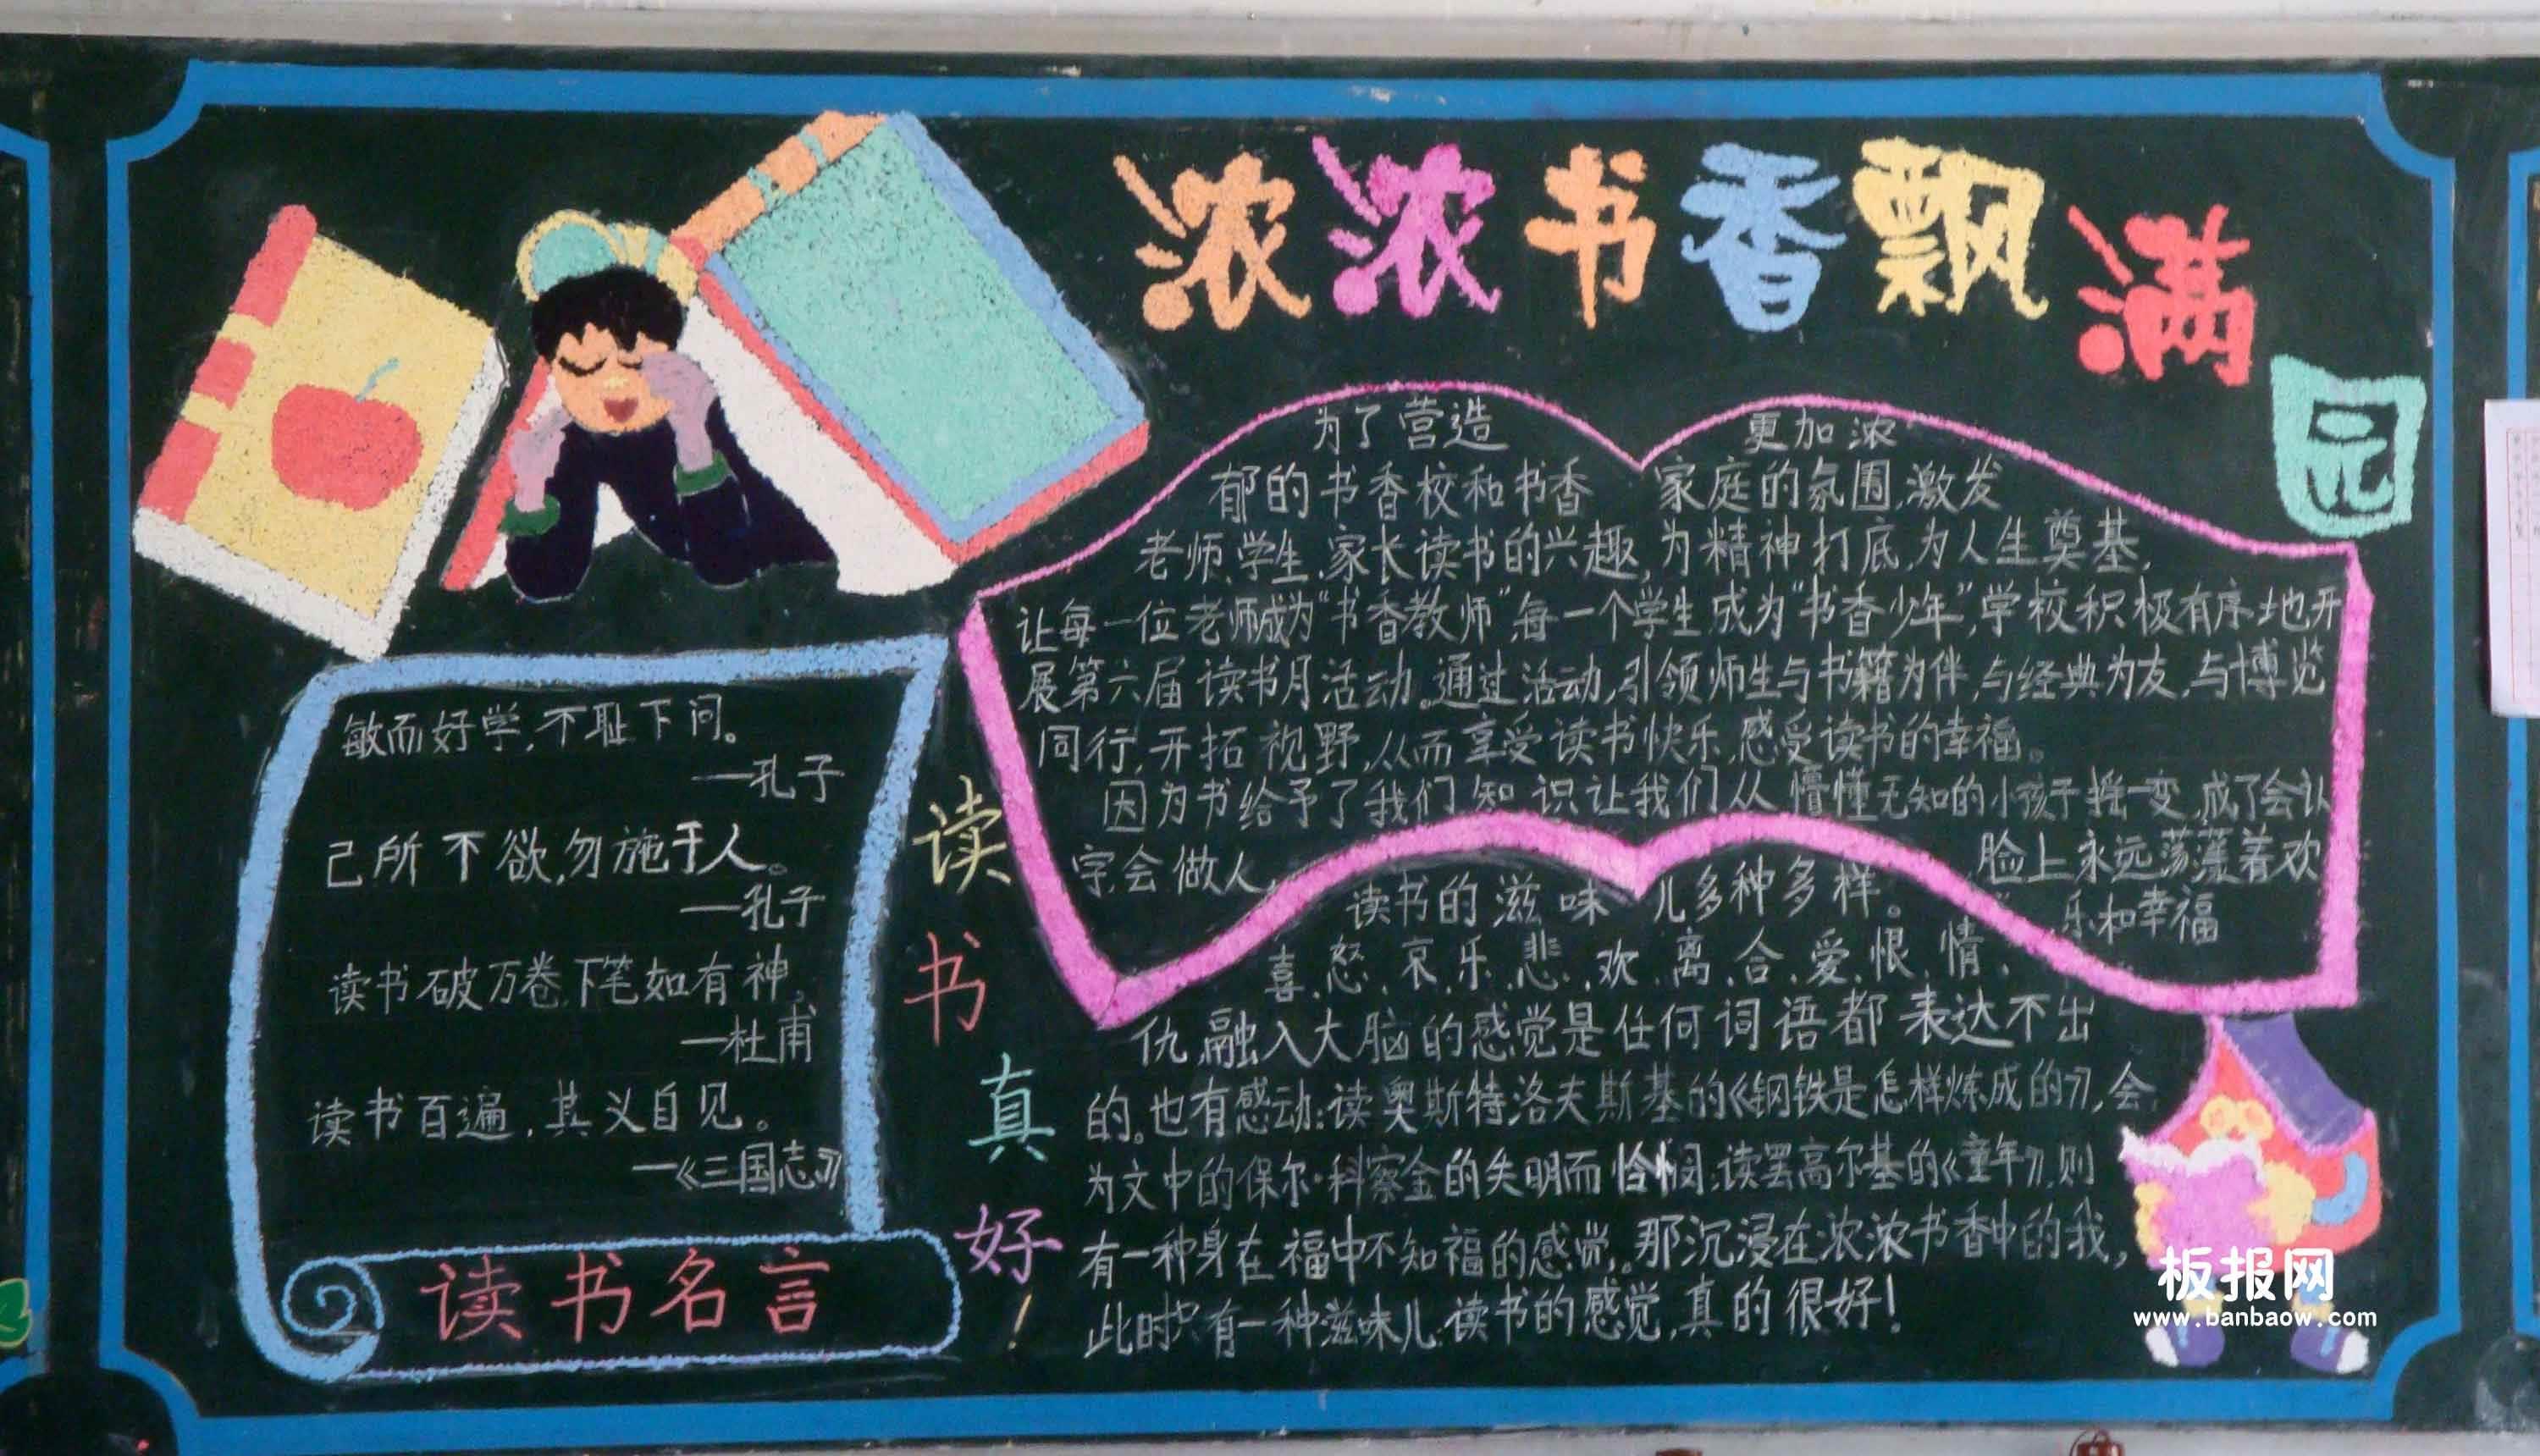 浓浓书香飘满园
为了营造 更加浓
郁的书香校和书香 家庭的氛围,激发
老师、学生、家长读书的兴趣,为精神打底,为人生奠基,
让每一位老师成为“书香教师”,每一个学生成为“书香少年”,学校积极有序地开
展第六届读书月活动。通过活动,引领师生与书籍为伴,与经典为友,与博览
同行,开拓视野,从而享受读书快乐,感受读书的幸福。
因为书给予了我们知识让我们从懵懂无知的小孩子摇一变,成了会认
字,会做人, 脸上永远荡漾着欢
乐和幸福
敏而好学,不耻下问。
——孔子
己所不欲,勿施于人。
——孔子
读书破万卷,下笔如有神。
—杜甫
读书百遍,其义自见。
—《三国志》
读书名言
读书真好!
读书的滋味儿多种多样。
喜、怒、哀、乐、悲、欢、离、合、爱、恨、情、
仇,融入大脑的感觉是任何词语都表达不出
的。也有感动:读奥斯特洛夫斯基的《钢铁是怎样炼成的》,会
为文中的保尔·科察金的失明而 ;读罢高尔基的《童年》,则
有一种身在福中不知福的感觉。那沉浸在浓浓书香中的我,
此时只有一种滋味儿:读书的感觉,真的很好!
板报网
www.banbaow.com